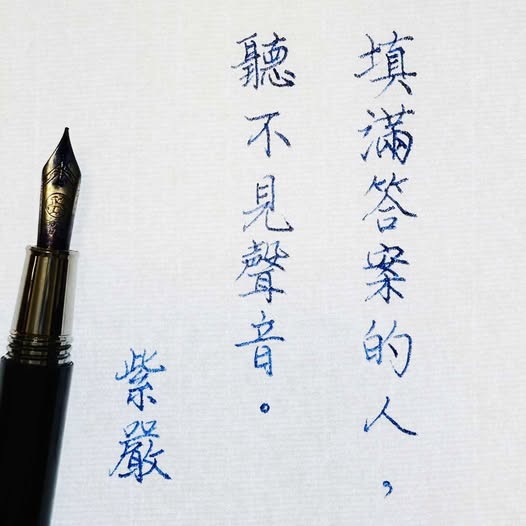 填滿答案的人，
聽不見聲音。
紫嚴